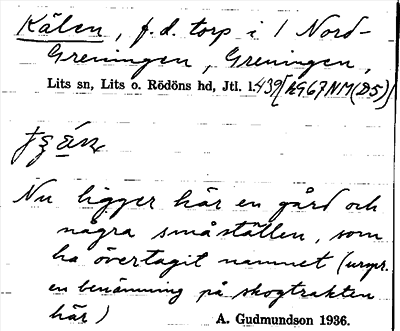 Kälen, f. d. torp i 1 Nord-
Greningen, Greningen,
Lits sn, Lits o. Rödöns hd, Jtl. l.439 [AG67NM(D5)]
Nu ligger här en gård och
några småställen, som
ha övertagit namnet (urspr.
en benämning på skogtrakten
här)
A. Gudmundson 1936.